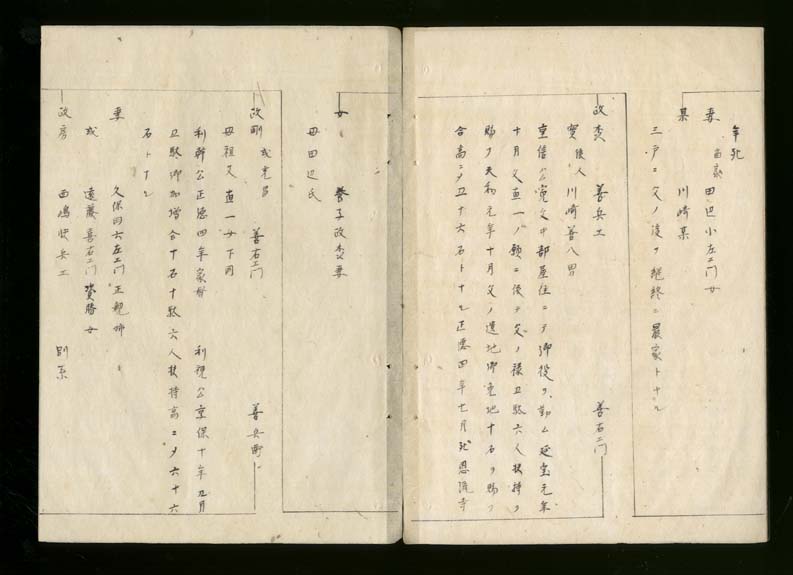 年死
妻 南家 田辺小左エ門女
某 川崎某
三戸ニ父ノ後ヲ継終ニ農家トナル
政 善兵エ 善右エ門
実 後人 川崎善八男
重信公寛文中部屋住ニテ御役ヲ勤ム延宝元年
十月父直一ノ願ニ後テ父ノ禄五駄六人扶持ヲ
賜フ天和元年十月父ノ遺地御免地十石ヲ賜フ
合高二タ五十六石トナル正徳四年七月死恩流寺
女 養子政 妻
母田辺氏
政剛 或 善右エ門 善兵衛
母祖父直一女下同
利幹公正徳四年家督 利視公享保十年五月
五駄御加増合十石十駄六人扶持高二タ六十六
石トナル
妻 久保田六左エ門正親姉
或 遠藤喜右エ門 勝女
政房 西嶋快兵エ 別系